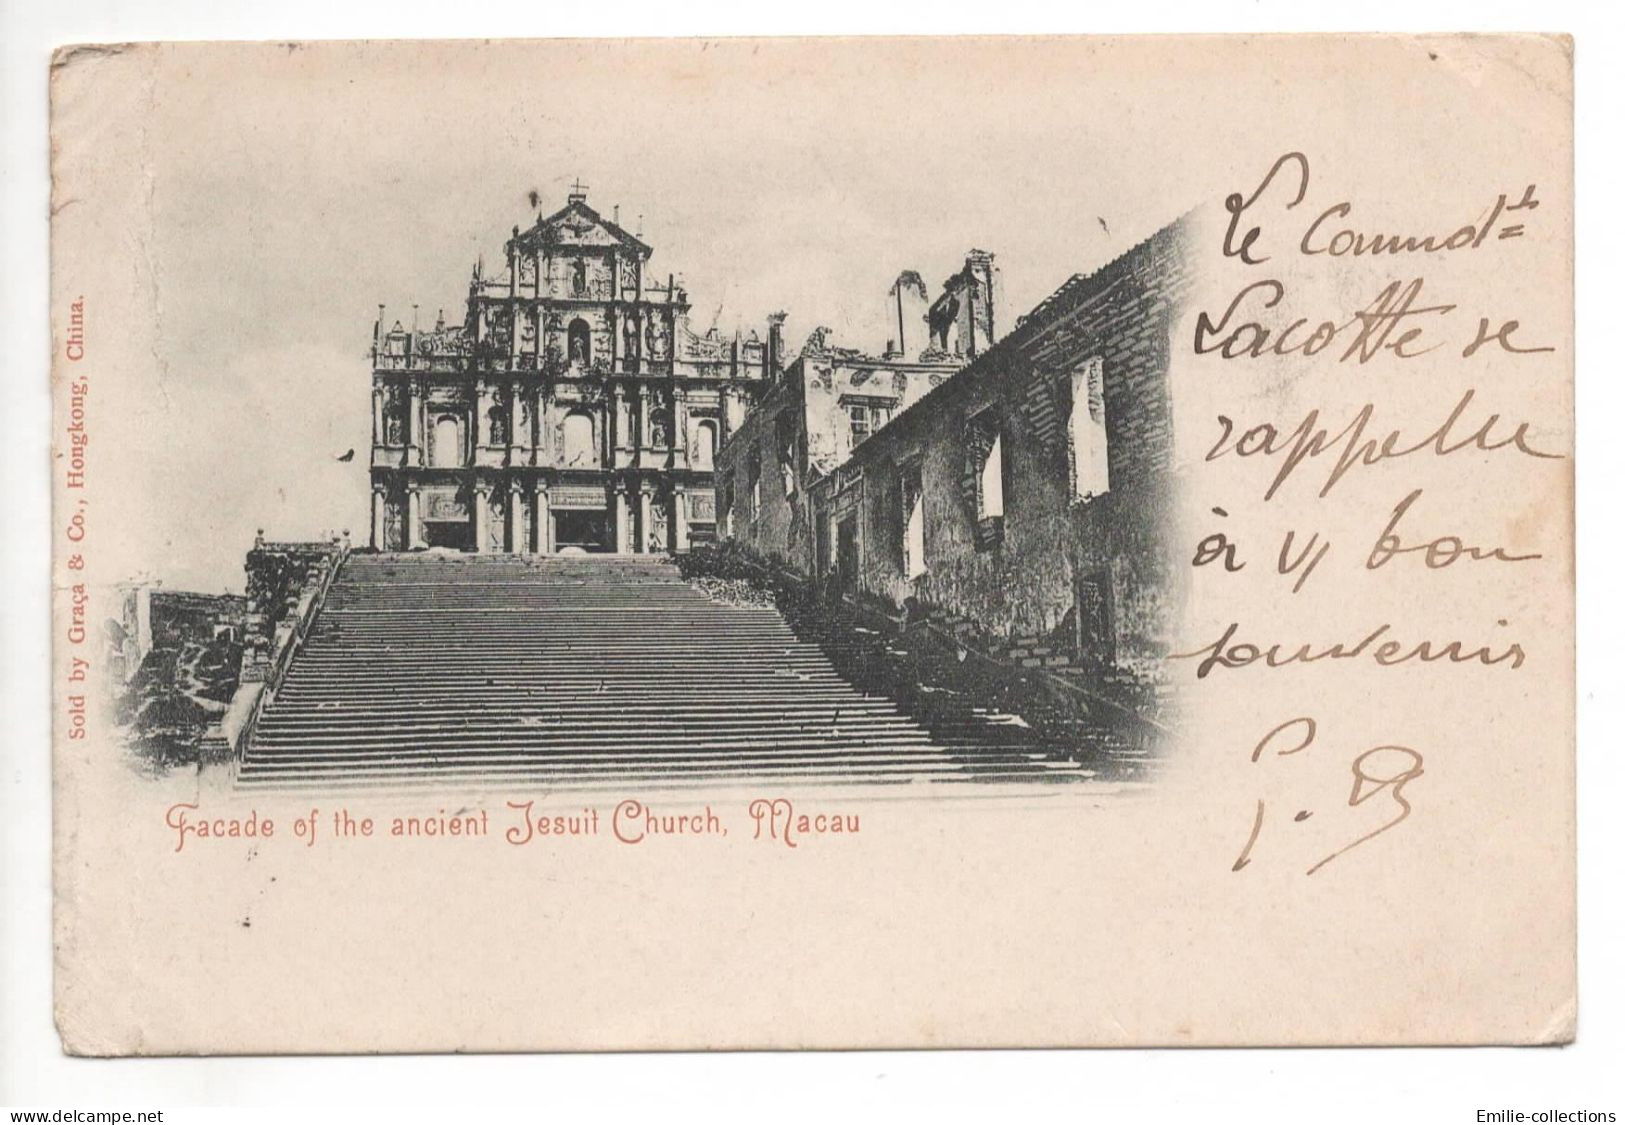 Sold by Graça & Co., Hongkong, China.
Facade of the ancient Jesuit Church, Macau
Le Commdt
Lacotte se
rappelle
à v/ bon
souvenir
Emilie-collections
www.delcampe.net